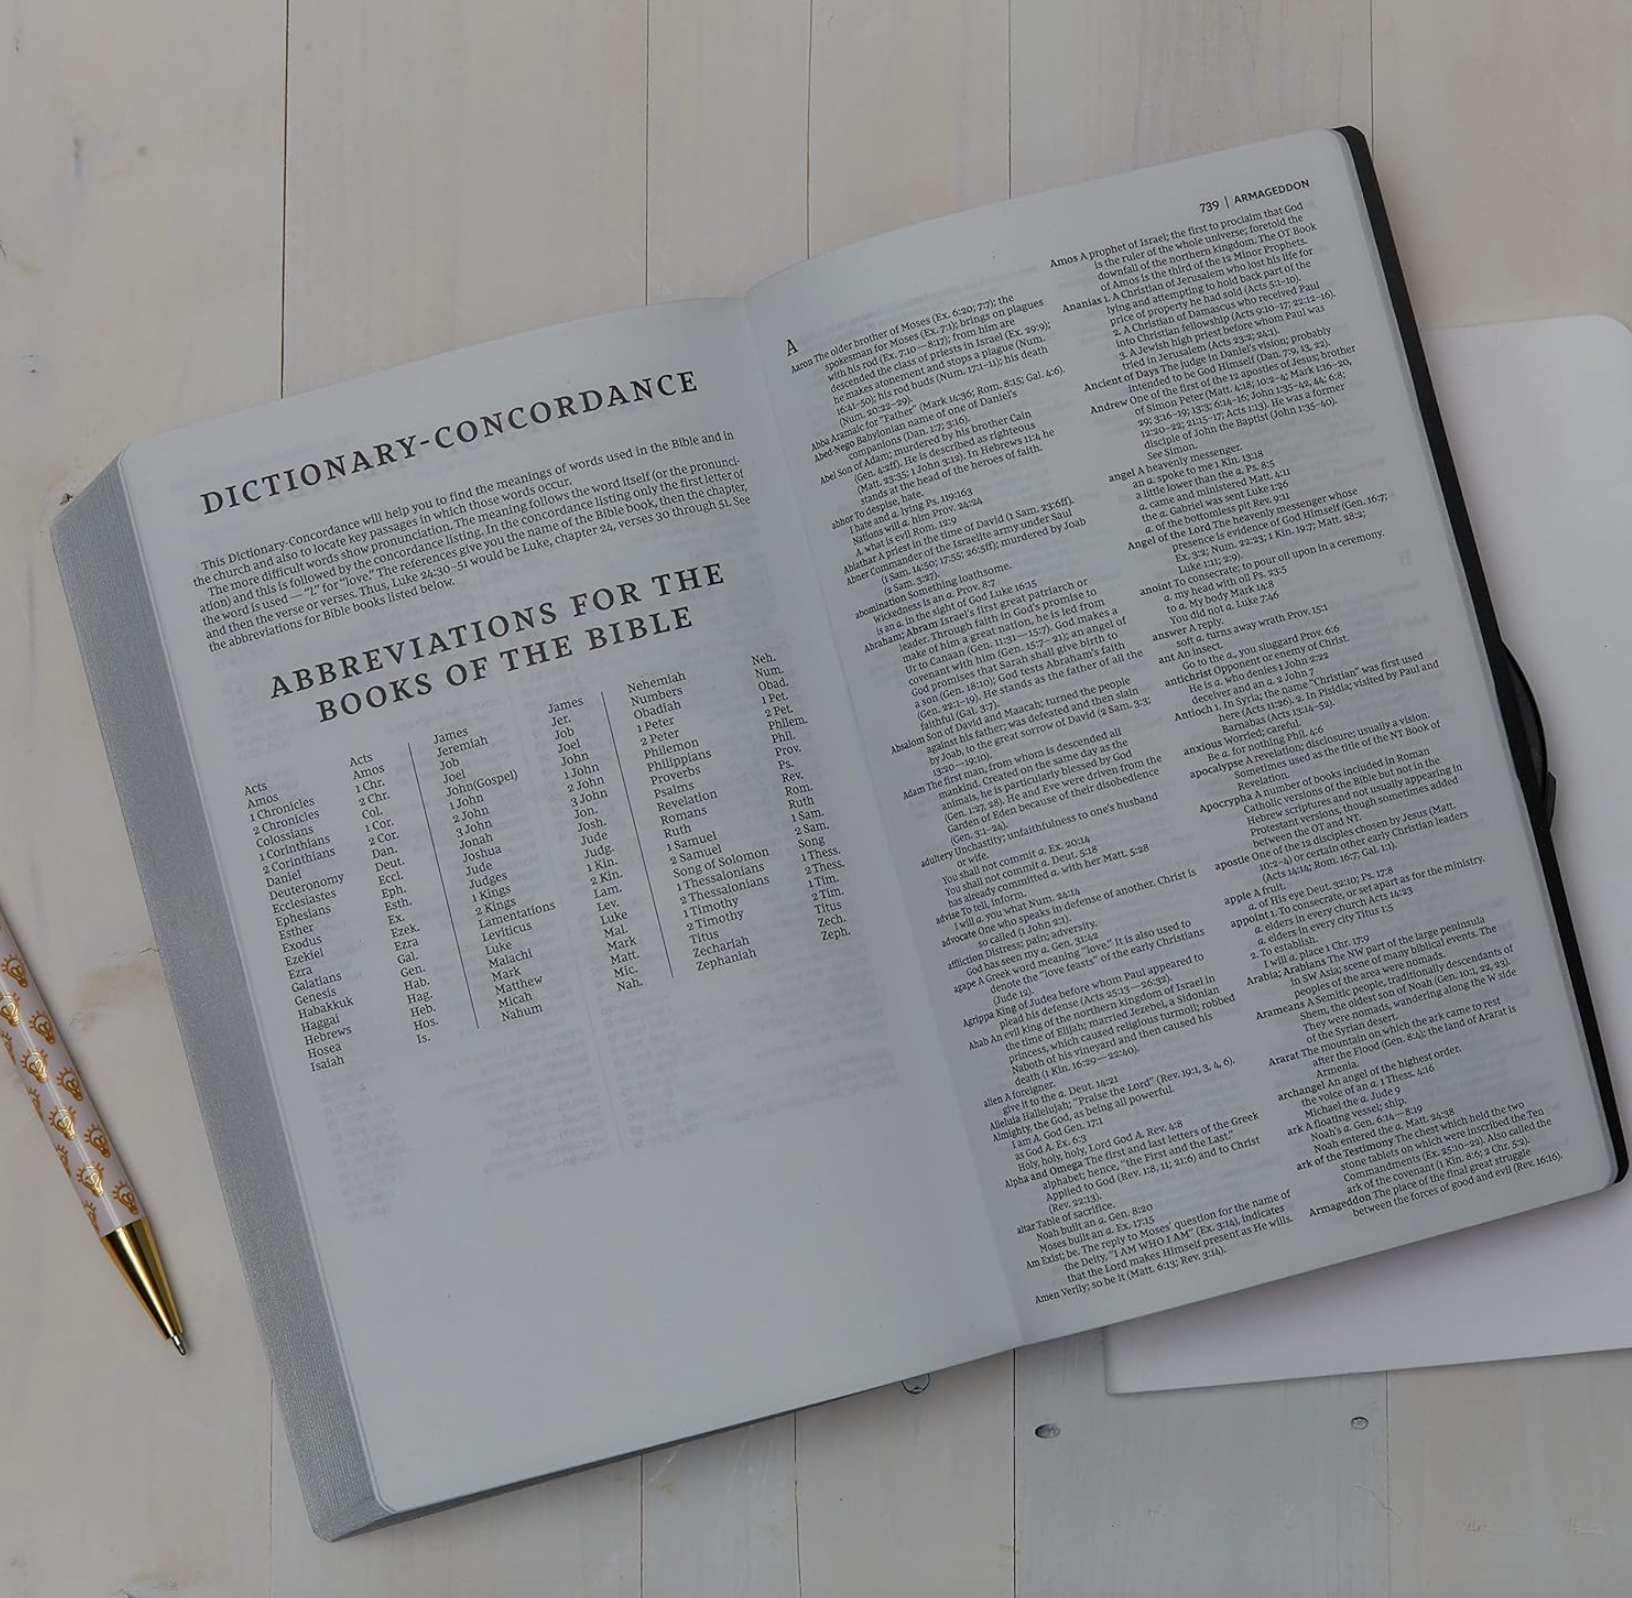 DICTIONARY-CONCORDANCE
This Dictionary-Concordance will help you to find the meanings of words used in the Bible and in
the church and also to locate key passages in which those words occur.
The more difficult words show pronunciation. The meaning follows the word itself (or the pronunci-
ation) and this is followed by the concordance listing. In the concordance listing only the first letter of
the word is used — "l." for "love." The references give you the name of the Bible book, then the chapter,
and then the verse or verses. Thus, Luke 24:30–51 would be Luke, chapter 24, verses 30 through 51. See
the abbreviations for Bible books listed below.
ABBREVIATIONS FOR THE
BOOKS OF THE BIBLE
Acts Acts
Amos Amos
1 Chronicles 1 Chr.
2 Chronicles 2 Chr.
Colossians Col.
1 Corinthians 1 Cor.
2 Corinthians 2 Cor.
Daniel Dan.
Deuteronomy Deut.
Ecclesiastes Eccl.
Ephesians Eph.
Esther Esth.
Exodus Ex.
Ezekiel Ezek.
Ezra Ezra
Galatians Gal.
Genesis Gen.
Habakkuk Hab.
Haggai Hag.
Hebrews Heb.
Hosea Hos.
Isaiah Is.
James James
Jeremiah Jer.
Job Job
Joel Joel
John(Gospel) John
1 John 1 John
2 John 2 John
3 John 3 John
Jonah Jon.
Joshua Josh.
Jude Jude
Judges Judg.
1 Kings 1 Kin.
2 Kings 2 Kin.
Lamentations Lam.
Leviticus Lev.
Luke Luke
Malachi Mal.
Mark Mark
Matthew Matt.
Micah Mic.
Nahum Nah.
Nehemiah Neh.
Numbers Num.
Obadiah Obad.
1 Peter 1 Pet.
2 Peter 2 Pet.
Philemon Philem.
Philippians Phil.
Proverbs Prov.
Psalms Ps.
Revelation Rev.
Romans Rom.
Ruth Ruth
1 Samuel 1 Sam.
2 Samuel 2 Sam.
Song of Solomon Song
1 Thessalonians 1 Thess.
2 Thessalonians 2 Thess.
1 Timothy 1 Tim.
2 Timothy 2 Tim.
Titus Titus
Zechariah Zech.
Zephaniah Zeph.
739 | ARMAGEDDON
A
Aaron The older brother of Moses (Ex. 6:20; 7:7); the
spokesman for Moses (Ex. 7:1); brings on plagues
with his rod (Ex. 7:10—8:17); from him are
descended the class of priests in Israel (Ex. 29:9);
he makes atonement and stops a plague (Num.
16:41–50); his rod buds (Num. 17:1–11); his death
(Num. 20:22–29).
Abba Aramaic for "Father" (Mark 14:36; Rom. 8:15; Gal. 4:6).
Abed-Nego Babylonian name of one of Daniel's
companions (Dan. 1:7; 3:16).
Abel Son of Adam; murdered by his brother Cain
(Gen. 4:2ff). He is described as righteous
(Matt. 23:35; 1 John 3:12). In Hebrews 11:4 he
stands at the head of the heroes of faith.
abhor To despise, hate.
I hate and a. lying Ps. 119:163
Nations will a. him Prov. 24:24
A. what is evil Rom. 12:9
Abiathar A priest in the time of David (1 Sam. 23:6ff).
Abner Commander of the Israelite army under Saul
(1 Sam. 14:50; 17:55; 26:5ff); murdered by Joab
(2 Sam. 3:27).
abomination Something loathsome.
Wickedness is an a. Prov. 8:7
is an a. in the sight of God Luke 16:15
Abraham; Abram Israel's first great patriarch or
leader. Through faith in God's promise to
make of him a great nation, he is led from
Ur to Canaan (Gen. 11:31—15:7). God makes a
covenant with him (Gen. 15:7–21); an angel of
God promises that Sarah shall give birth to
a son (Gen. 18:10); God tests Abraham's faith
(Gen. 22:1–19). He stands as the father of all the
faithful (Gal. 3:7).
Absalom Son of David and Maacah; turned the people
against his father; was defeated and then slain
by Joab, to the great sorrow of David (2 Sam. 3:3;
13:20—19:10).
Adam The first man, from whom is descended all
mankind. Created on the same day as the
animals, he is particularly blessed by God
(Gen. 1:27, 28). He and Eve were driven from the
Garden of Eden because of their disobedience
(Gen. 3:1–24).
adultery Unchastity; unfaithfulness to one's husband
or wife.
You shall not commit a. Ex. 20:14
You shall not commit a. Deut. 5:18
has already committed a. with her Matt. 5:28
advise To tell, inform.
I will a. you what Num. 24:14
advocate One who speaks in defense of another. Christ is
so called (1 John 2:1).
affliction Distress; pain; adversity.
God has seen my a. Gen. 31:42
agape A Greek word meaning "love." It is also used to
denote the "love feasts" of the early Christians
(Jude 12).
Agrippa King of Judea before whom Paul appeared to
plead his defense (Acts 25:13—26:32).
Ahab An evil king of the northern kingdom of Israel in
the time of Elijah; married Jezebel, a Sidonian
princess, which caused religious turmoil; robbed
Naboth of his vineyard and then caused his
death (1 Kin. 16:29—22:40).
alien A foreigner.
give it to the a. Deut. 14:21
Alleluia Hallelujah; "Praise the Lord" (Rev. 19:1, 3, 4, 6).
Almighty, the God, as being all powerful.
I am A. God Gen. 17:1
as God A. Ex. 6:3
Holy, holy, holy, Lord God A. Rev. 4:8
Alpha and Omega The first and last letters of the Greek
alphabet; hence, "the First and the Last."
Applied to God (Rev. 1:8, 11; 21:6) and to Christ
(Rev. 22:13).
altar Table of sacrifice.
Noah built an a. Gen. 8:20
Moses built an a. Ex. 17:15
Am Exist; be. The reply to Moses' question for the name of
the Deity, "I AM WHO I AM" (Ex. 3:14), indicates
that the Lord makes Himself present as He wills.
Amen Verily; so be it (Matt. 6:13; Rev. 3:14).
Amos A prophet of Israel; the first to proclaim that God
is the ruler of the whole universe; foretold the
downfall of the northern kingdom. The OT Book
of Amos is the third of the 12 Minor Prophets.
Ananias 1. A Christian of Jerusalem who lost his life for
lying and attempting to hold back part of the
price of property he had sold (Acts 5:1–10).
2. A Christian of Damascus who received Paul
into Christian fellowship (Acts 9:10–17; 22:12–16).
3. A Jewish high priest before whom Paul was
tried in Jerusalem (Acts 23:2; 24:1).
Ancient of Days The judge in Daniel's vision; probably
intended to be God Himself (Dan. 7:9, 13, 22).
Andrew One of the first of the 12 apostles of Jesus; brother
of Simon Peter (Matt. 4:18; 10:2–4; Mark 1:16–20,
29; 3:16–19; 13:3; 6:14–16; John 1:35–42, 44; 6:8;
12:20–22; 21:15–17; Acts 1:13). He was a former
disciple of John the Baptist (John 1:35–40).
See Simon.
angel A heavenly messenger.
an a. spoke to me 1 Kin. 13:18
a little lower than the a. Ps. 8:5
a. came and ministered Matt. 4:11
the a. Gabriel was sent Luke 1:26
a. of the bottomless pit Rev. 9:11
Angel of the Lord The heavenly messenger whose
presence is evidence of God Himself (Gen. 16:7;
Ex. 3:2; Num. 22:23; 1 Kin. 19:7; Matt. 28:2;
Luke 1:11; 2:9).
anoint To consecrate; to pour oil upon in a ceremony.
a. my head with oil Ps. 23:5
to a. My body Mark 14:8
You did not a. Luke 7:46
answer A reply.
soft a. turns away wrath Prov. 15:1
ant An insect.
Go to the a., you sluggard Prov. 6:6
antichrist Opponent or enemy of Christ.
He is a. who denies 1 John 2:22
deceiver and an a. 2 John 7
Antioch 1. In Syria; the name "Christian" was first used
here (Acts 11:26). 2. In Pisidia; visited by Paul and
Barnabas (Acts 13:14–52).
anxious Worried; careful.
Be a. for nothing Phil. 4:6
apocalypse A revelation; disclosure; usually a vision.
Sometimes used as the title of the NT Book of
Revelation.
Apocrypha A number of books included in Roman
Catholic versions of the Bible but not in the
Hebrew scriptures and not usually appearing in
Protestant versions, though sometimes added
between the OT and NT.
apostle One of the 12 disciples chosen by Jesus (Matt.
10:2–4) or certain other early Christian leaders
(Acts 14:14; Rom. 16:7; Gal. 1:1).
apple A fruit.
a. of His eye Deut. 32:10; Ps. 17:8
appoint 1. To consecrate, or set apart as for the ministry.
a. elders in every church Acts 14:23
a. elders in every city Titus 1:5
2. To establish.
I will a. place 1 Chr. 17:9
Arabia; Arabians The NW part of the large peninsula
in SW Asia; scene of many biblical events. The
peoples of the area were nomads.
Arameans A Semitic people, traditionally descendants of
Shem, the oldest son of Noah (Gen. 10:1, 22, 23).
They were nomads, wandering along the W side
of the Syrian desert.
Ararat The mountain on which the ark came to rest
after the Flood (Gen. 8:4); the land of Ararat is
Armenia.
archangel An angel of the highest order.
the voice of an a. 1 Thess. 4:16
Michael the a. Jude 9
ark A floating vessel; ship.
Noah's a. Gen. 6:14—8:19
Noah entered the a. Matt. 24:38
ark of the Testimony The chest which held the two
stone tablets on which were inscribed the Ten
Commandments (Ex. 25:10–22). Also called the
ark of the covenant (1 Kin. 8:6; 2 Chr. 5:2).
Armageddon The place of the final great struggle
between the forces of good and evil (Rev. 16:16).